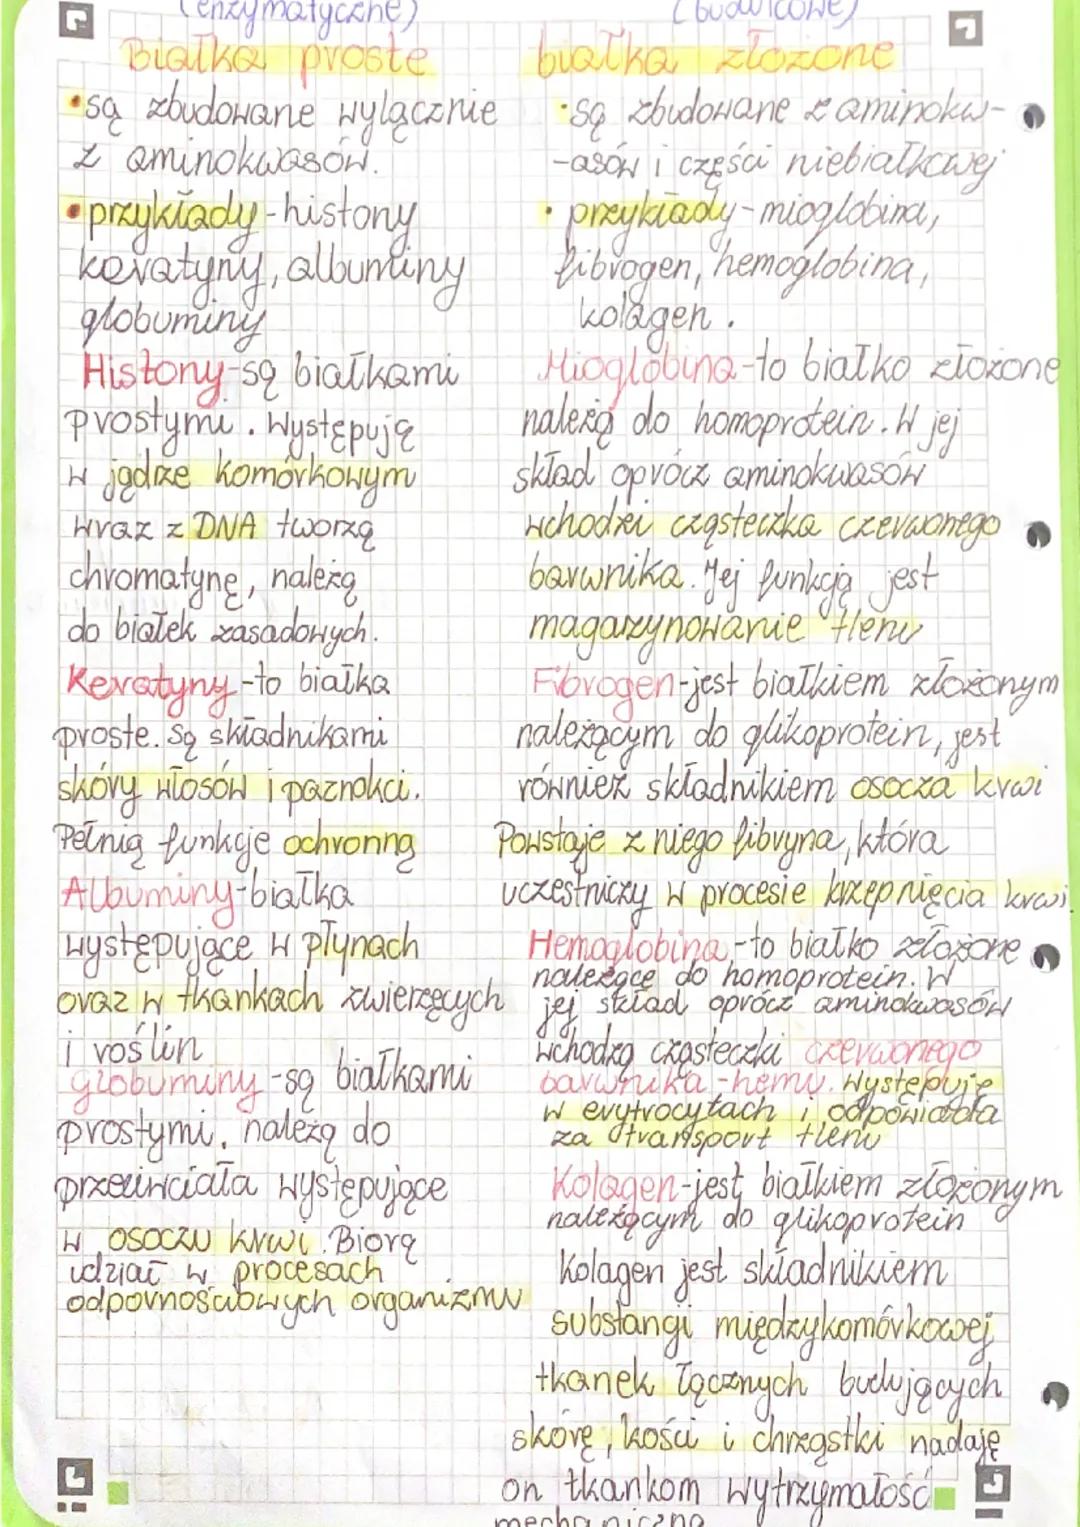 (enzymatyczne)
Białka proste
• są zbudowane wyłącznie
z aminokwasów.
• przykłady - histony
keratyny, albuminy
globuminy
Histony - są białkami
prostymi. Występują
w jądrze komórkowym
wraz z DNA tworzą
chromatynę, należą
do białek zasadowych.
Keratyny - to białka
proste. Są składnikami
skóry włosów i paznokci.
Pełnią funkcje ochronną
Albuminy - białka
występujące w płynach
oraz w tkankach zwierzęcych
i roślin
globuminy - są białkami
prostymi, należą do
przeciwciała występujące
w osoczu krwi. Biorą
udział w procesach
odpornościowych organizmu
(budulcowe)
białka złożone
• są zbudowane z aminokw-
-asów i części niebiałkowej
• przykłady - mioglobina,
fibrogen, hemoglobina,
kolagen.
Mioglobina - to białko złożone
należą do homoprotein. W jej
skład oprócz aminokwasów
wchodzi cząsteczka czerwonego
barwnika. Jej funkcją jest
magazynowanie tlenu
Fibrogen - jest białkiem złożonym
należącym do glikoprotein, jest
również składnikiem osocza krwi
Powstaje z niego fibryna, która
uczestniczy w procesie krzepnięcia krwi.
Hemoglobina - to białko złożone
należące do homoprotein. W
jej skład oprócz aminokwasów
wchodzą cząsteczki czerwonego
barwnika - hemu. Występuje
w erytrocytach i odpowiada
za transport tlenu
Kolagen - jest białkiem złożonym
należącym do glikoprotein
Kolagen jest składnikiem
substangi międzykomórkowej
tkanek łącznych budujących
skórę, kości i chrząstki nadaję
on tkankom wytrzymałość
mechaniczną